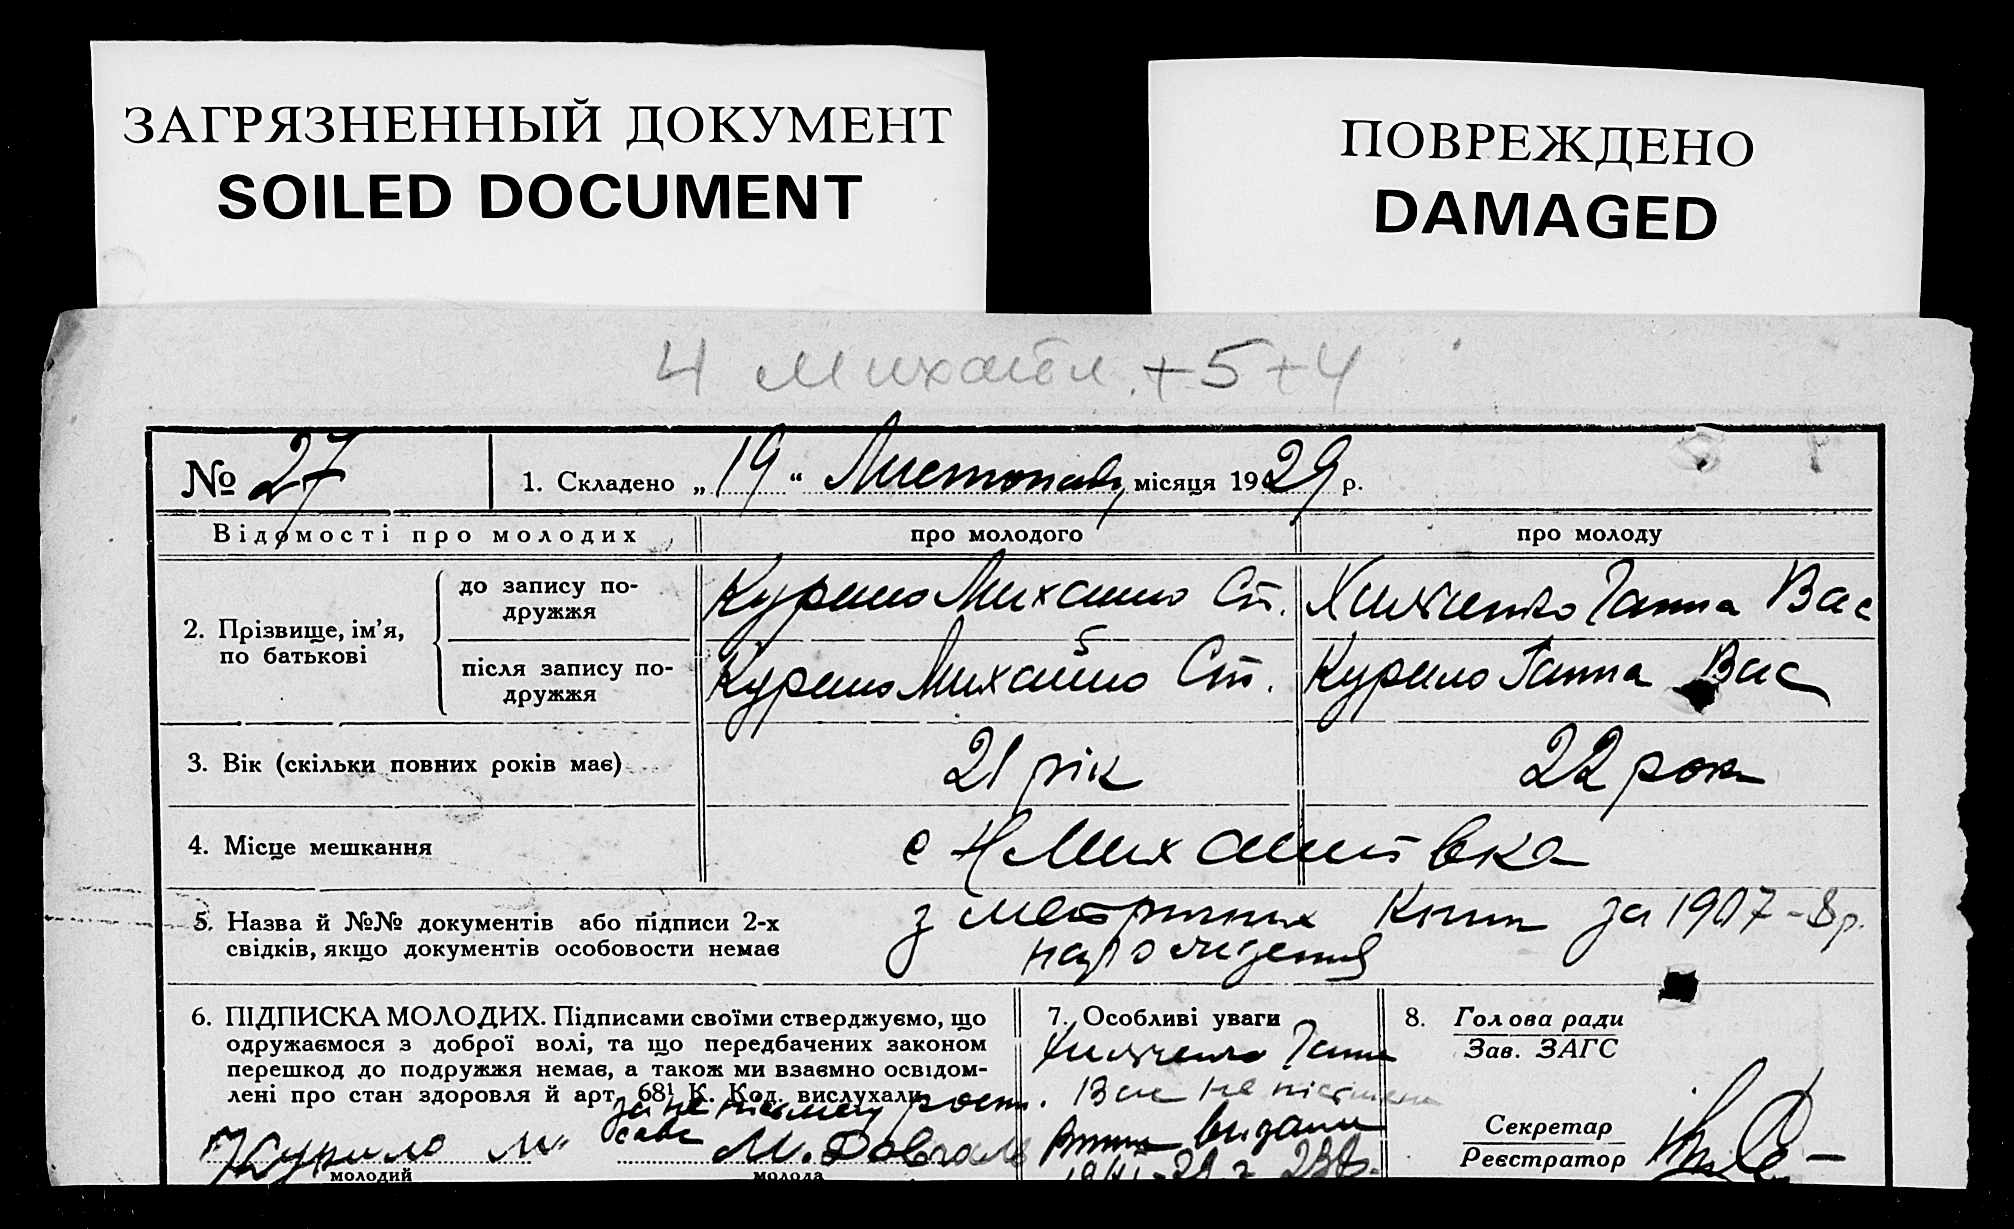 ЗАГРЯЗНЕННЫЙ ДОКУМЕНТ
SOILED DOCUMENT
ПОВРЕЖДЕНО
DAMAGED
4 Михайл. +5+4
№ 27
1. Складено „19“ Листопада місяця 1929 р.
Відомості про молодих
про молодого
про молоду
2. Прізвище, ім’я, по батькові
до запису подружжя
Курило Михайло Ст.
Ганна Вас
після запису подружжя
Курило Михайло Ст.
Курило Ганна Вас
3. Вік (скільки повних років має)
21 рік
22 роки
4. Місце мешкання
с Н Михайлівка
5. Назва й №№ документів або підписи 2-х
свідків, якщо документів особовости немає
з метричних книг за 1907-8 р.
народження
6. ПІДПИСКА МОЛОДИХ. Підписами своїми стверджуємо, що
одружаємося з доброї волі, та що передбачених законом
перешкод до подружжя немає, а також ми взаємно освідом-
лені про стан здоровля й арт. 68¹ К. Код. вислухали.
за не письмен
Курило М
М. Довгаль
молодий
молода
7. Особливі уваги
Ганна
Вас не
видани
8. Голова ради
Зав. ЗАГС
Секретар
Реєстратор